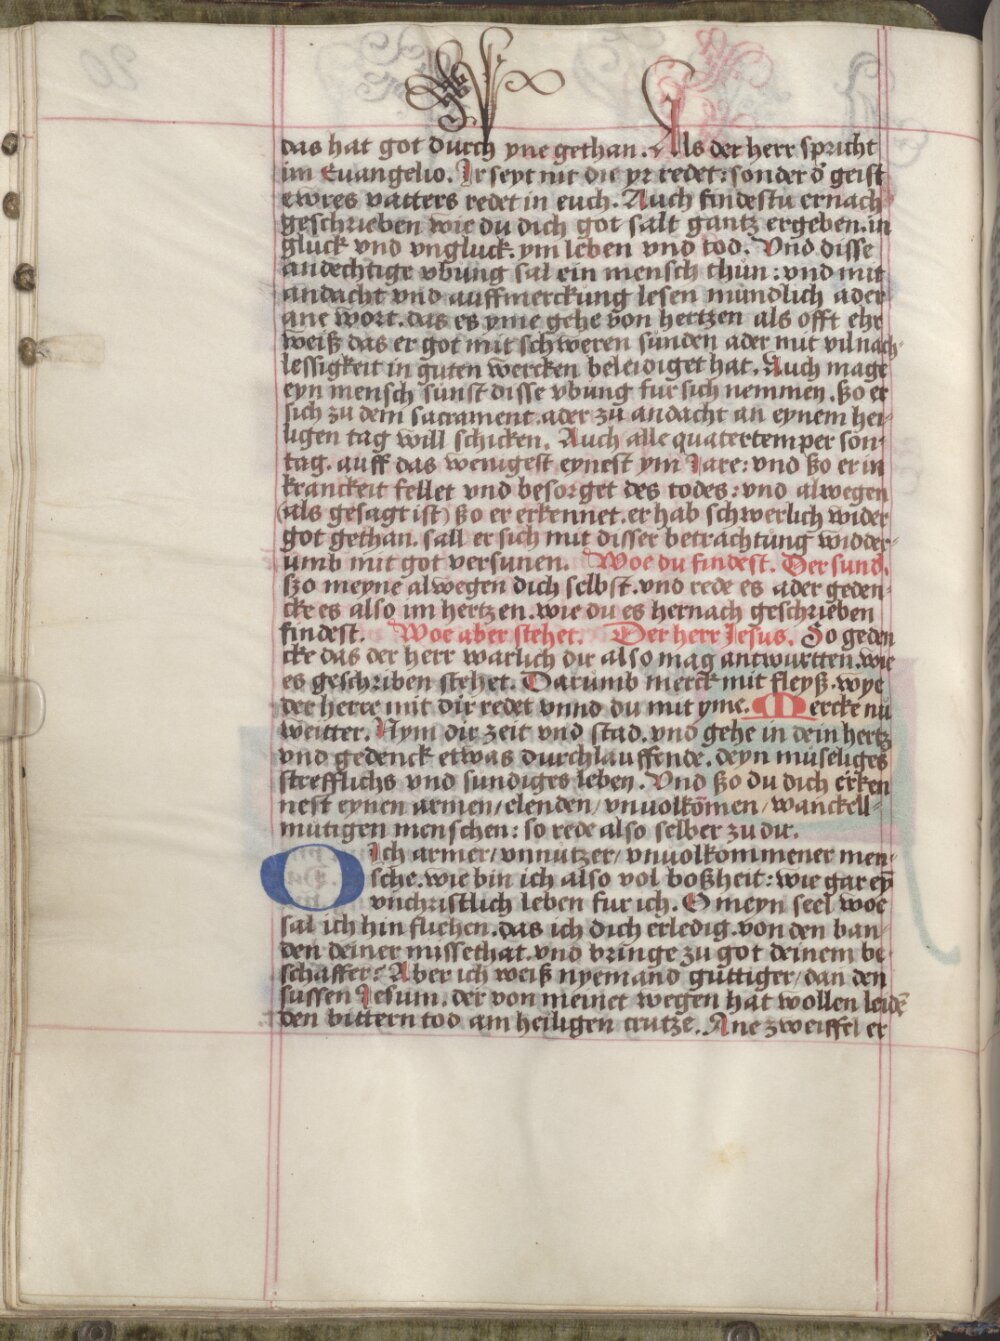 das hat got durch yne gethan. Als der herr spricht
im Euangelio. Ir seyt nit die yr redet: sonder d' geist
ewres vatters redet in euch. Auch findestu ernach
geschrieben wie du dich got salt gantz ergeben. in
gluck vnd vngluck. ym leben vnd tod. Vnd disse
andechtige vbung sal ein mensch thun: vnd mit
andacht vnd auffmerckung lesen mundlich ader
ane wort. das es yme gehe von hertzen als offt ehr
weiß das er got mit schweren sunden ader mit vil nach-
lessigkeit in guten wercken beleidiget hat. Auch mage
eyn mensch sunst disse vbung fur sich nemmen. ßo er
sich zu dem sacrament. ader zu andacht an eynem hei-
ligen tag will schicken. Auch alle quatertemper son-
tag. auff das wenigest eynest ym Jare: vnd ßo er in
kranckeit fellet vnd besorget des todes: vnd alwegen
(als gesagt ist) ßo er erkennet. er hab schwerlich wider
got gethan. sall er sich mit disser betrachtung widder-
umb mit got versunen. Woe du findest. Der sund.
szo meyne alwegen dich selbst. vnd rede es ader geden-
cke es also im hertzen. wie du es hernach geschrieben
findest. Woe aber stehet. Der herr Jesus. So geden
cke das der herr warlich dir also mag antwurtten. wie
es geschriben stehet. Darumb merck mit fleyß. wye
der herre mit dir redet vnnd du mit yme. Mercke nu
weitter. Nym dir zeit vnd stad. vnd gehe in dein hertz
vnd gedenck etwas durchlauffende. deyn museliges
strefflichs vnd sundiges leben. Vnd ßo du dich erken
nest eynen armen/ elenden/ vnuolkõmen/ wanckell-
mutigen menschen: so rede also selber zu dir.
O Ich armer/ vnnutzer/ vnuolkommener men-
sche. wie bin ich also vol boßheit: wie gar eyn̄
vnchristlich leben fur ich. O meyn seel woe
sal ich hin fliehen. das ich dich erledig. von den ban-
den deiner missethat. vnd bringe zu got deinem be-
schaffer? Aber ich weiß nyemand guttiger/ dan den
sussen Jesum. der von meinet wegen hat wollen leidē
den bittern tod am heiligen crutze. Ane zweiffel er